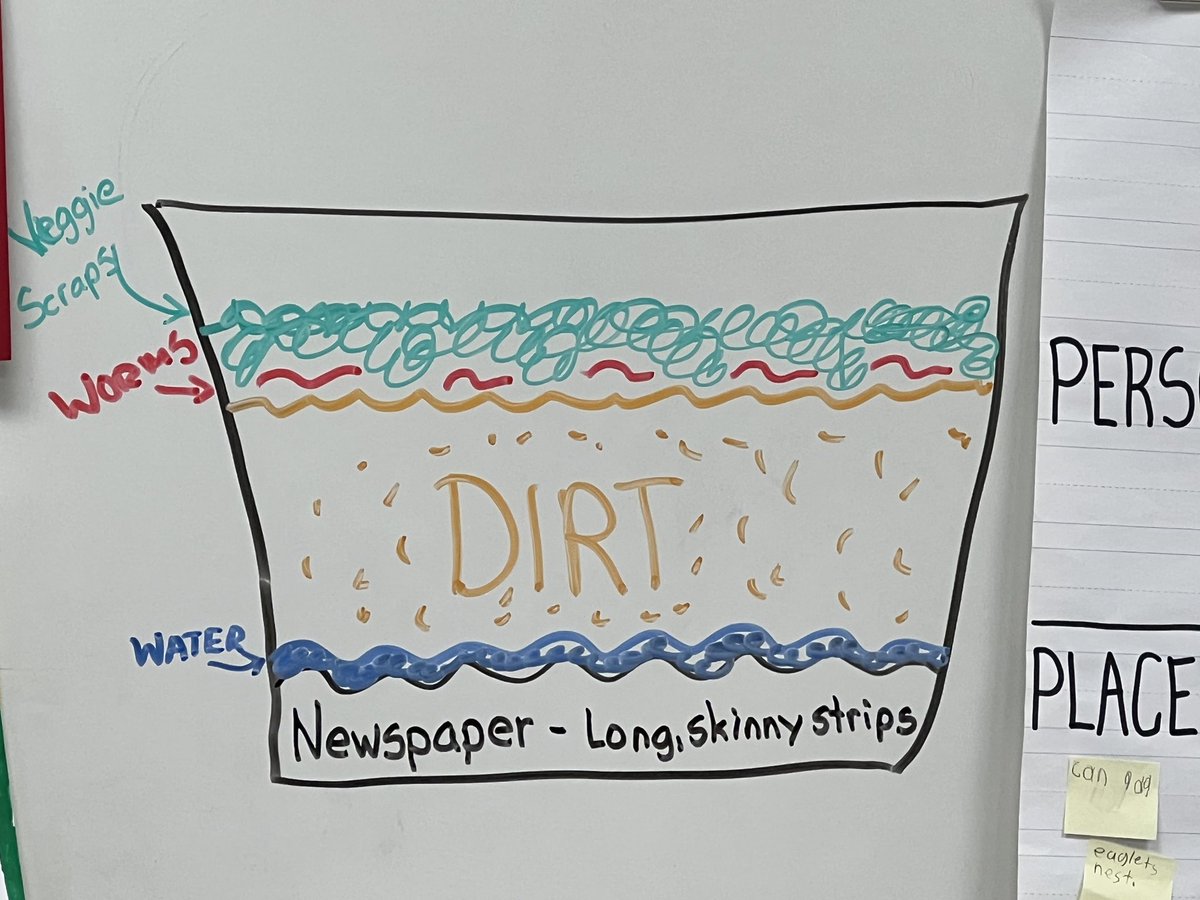 Veggie
Scraps
Worms
DIRT
WATER
Newspaper - Long, skinny strips
PERS
PLACE
can
eaglets
nest.